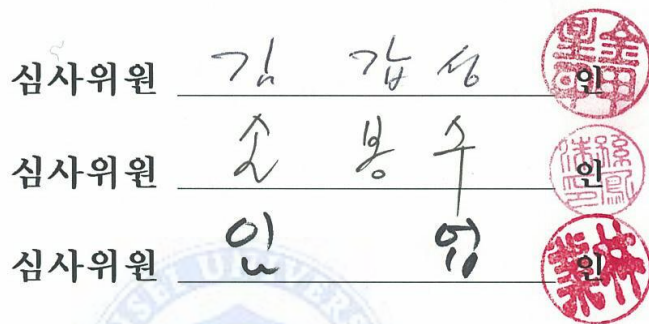 심사위원 김 갑 성 인
심사위원 손 봉 수 인
심사위원 임 업 인